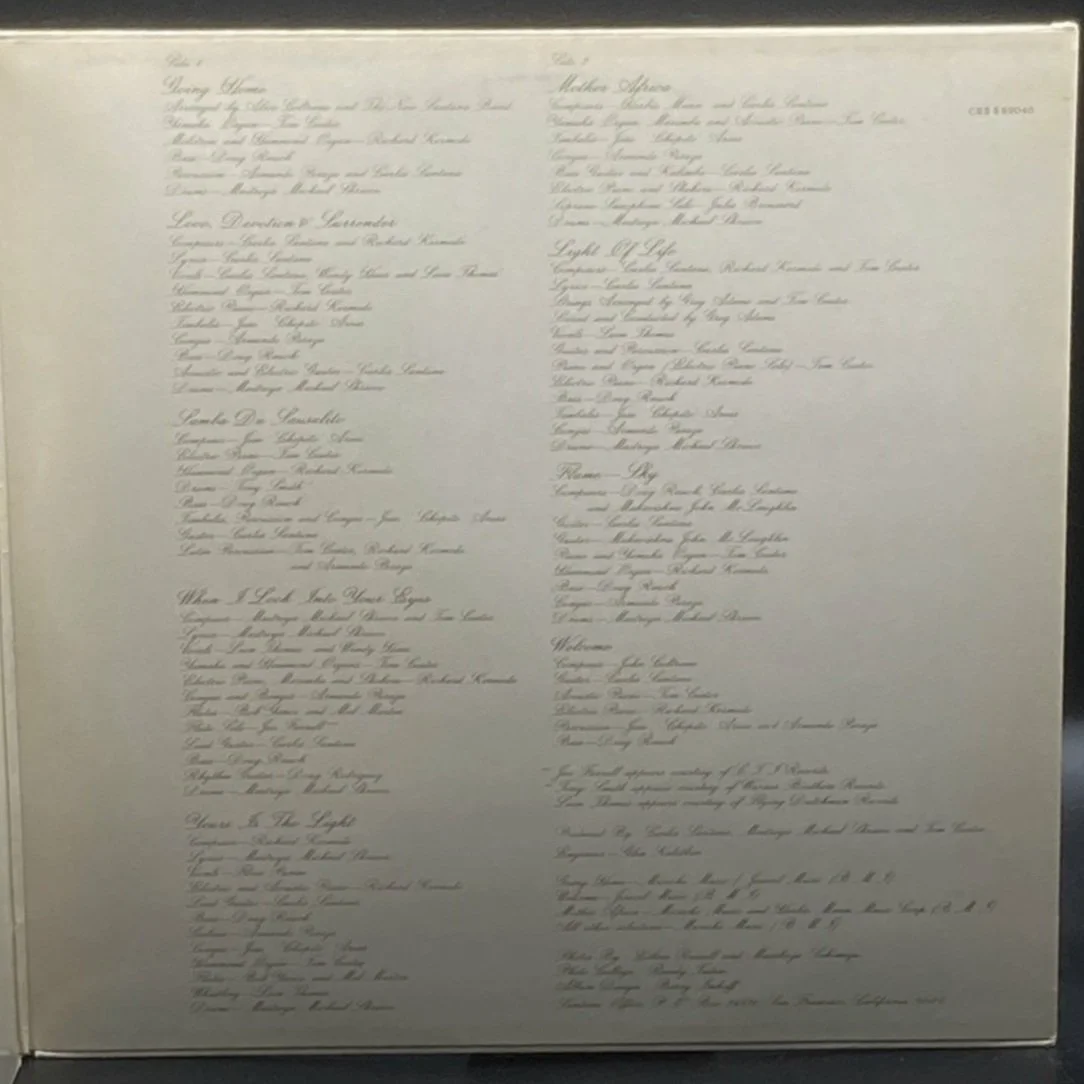 Side 1
Going Home
Arranged by Alice Coltrane and The New Santana Band
Yamaha Organ—Tom Coster
Mellotron and Hammond Organ—Richard Kermode
Bass—Doug Rauch
Percussion—Armando Peraza and Carlos Santana
Drums—Maitreya Michael Shrieve
Love, Devotion & Surrender
Composers—Carlos Santana and Richard Kermode
Lyrics—Carlos Santana
Vocals—Carlos Santana, Wendy Haas and Leon Thomas
Hammond Organ—Tom Coster
Electric Piano—Richard Kermode
Timbales—Jose Chepito Areas
Congas—Armando Peraza
Bass—Doug Rauch
Acoustic and Electric Guitar—Carlos Santana
Drums—Maitreya Michael Shrieve
Samba De Sausalito
Composer—Jose Chepito Areas
Electric Piano—Tom Coster
Hammond Organ—Richard Kermode
Drums—Tony Smith
Bass—Doug Rauch
Timbales, Percussion and Congas—Jose Chepito Areas
Guitar—Carlos Santana
Latin Percussion—Tom Coster, Richard Kermode
and Armando Peraza
When I Look Into Your Eyes
Composers—Maitreya Michael Shrieve and Tom Coster
Lyrics—Maitreya Michael Shrieve
Vocals—Leon Thomas and Wendy Haas
Yamaha and Hammond Organs—Tom Coster
Electric Piano, Marimba and Shekere—Richard Kermode
Congas and Bongos—Armando Peraza
Flutes—Bob Yance and Mel Martin
Flute Solo—Joe Farrell
Lead Guitar—Carlos Santana
Bass—Doug Rauch
Rhythm Guitar—Doug Rodriguez
Drums—Maitreya Michael Shrieve
Yours Is The Light
Composer—Richard Kermode
Lyrics—Maitreya Michael Shrieve
Vocals—Flora Purim
Electric and Acoustic Piano—Richard Kermode
Lead Guitar—Carlos Santana
Bass—Doug Rauch
Armando Peraza
Congas—Jose Chepito Areas
Hammond Organ—Tom Coster
Flutes—Bob Yance and Mel Martin
Whistling—Leon Thomas
Drums—Maitreya Michael Shrieve
Side 2
Mother Africa
Composers—Herbie Mann and Carlos Santana
Yamaha Organ, Marimba and Acoustic Piano—Tom Coster
Timbales—Jose Chepito Areas
Congas—Armando Peraza
Bass Guitar and Kalimba—Carlos Santana
Electric Piano and Shekere—Richard Kermode
Soprano Saxophone Solo—Jules Broussard
Drums—Maitreya Michael Shrieve
Light Of Life
Composers—Carlos Santana, Richard Kermode and Tom Coster
Lyrics—Carlos Santana
Strings Arranged by Greg Adams and Tom Coster
and Conducted by Greg Adams
Vocals—Leon Thomas
Guitar and Percussion—Carlos Santana
Piano and Organ (Electric Piano Solo)—Tom Coster
Electric Piano—Richard Kermode
Bass—Doug Rauch
Timbales—Jose Chepito Areas
Congas—Armando Peraza
Drums—Maitreya Michael Shrieve
Flame—Sky
Composers—Doug Rauch, Carlos Santana
and Mahavishnu John McLaughlin
Guitar—Carlos Santana
Guitar—Mahavishnu John McLaughlin
Piano and Yamaha Organ—Tom Coster
Hammond Organ—Richard Kermode
Bass—Doug Rauch
Congas—Armando Peraza
Drums—Maitreya Michael Shrieve
Welcome
Composer—John Coltrane
Guitar—Carlos Santana
Acoustic Piano—Tom Coster
Electric Piano—Richard Kermode
Percussion—Jose Chepito Areas and Armando Peraza
Bass—Doug Rauch
Joe Farrell appears courtesy of C T I Records
Tony Smith appears courtesy of Warner Brothers Records
Leon Thomas appears courtesy of Flying Dutchman Records
Produced By Carlos Santana, Maitreya Michael Shrieve and Tom Coster
Engineer—Glen Kolotkin
Going Home—Music / Jowcol Music (B. M. I)
Welcome—Jowcol Music (B. M. I)
Mother Africa—Music and Herbie Mann Music Corp. (B. M. I)
All other selections—Music (B. M. I)
Photos By and
Photo Collage
Album Design
Santana Office, P. O. Box San Francisco, California
CBS S 69040